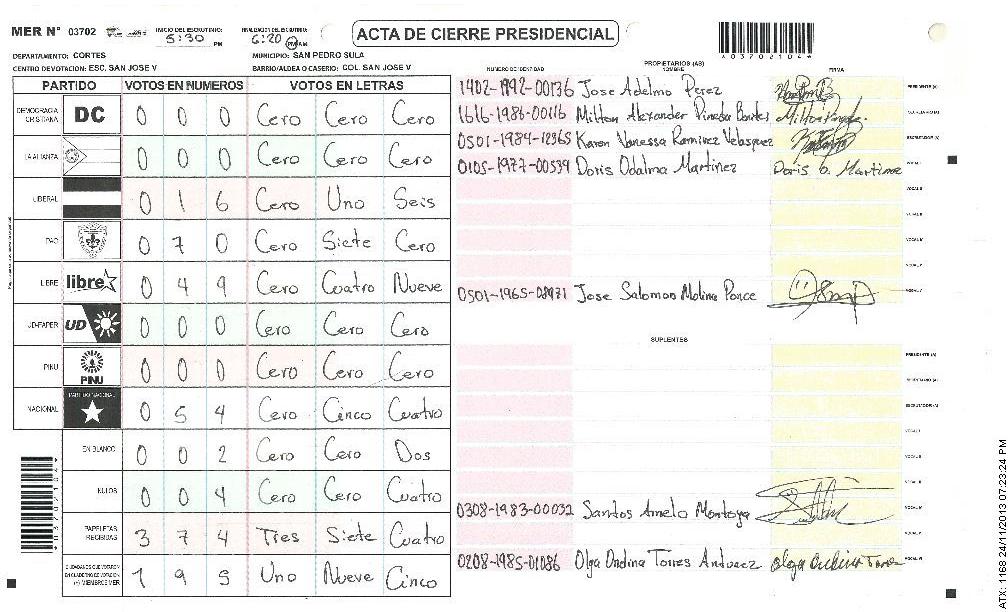 MER N° 03702 INICIO DEL ESCRUTINIO: 5:30 PM FINALIZACION DEL ESCRUTINIO: 6:20 PM AM
ACTA DE CIERRE PRESIDENCIAL
*03702104*
DEPARTAMENTO: CORTES MUNICIPIO: SAN PEDRO SULA
CENTRO DE VOTACION: ESC. SAN JOSE V BARRIO/ALDEA O CASERIO: COL. SAN JOSE V
PARTIDO VOTOS EN NUMEROS VOTOS EN LETRAS
DEMOCRACIA CRISTIANA DC 0 0 0 Cero Cero Cero
LA ALIANZA 0 0 0 Cero Cero Cero
LIBERAL 0 1 6 Cero Uno Seis
PAC 0 7 0 Cero Siete Cero
LIBRE libre 0 4 9 Cero Cuatro Nueve
UD-FAPER UD 0 0 0 Cero Cero Cero
PINU PINU 0 0 0 Cero Cero Cero
NACIONAL PARTIDO NACIONAL 0 5 4 Cero Cinco Cuatro
EN BLANCO 0 0 2 Cero Cero Dos
NULOS 0 0 4 Cero Cero Cuatro
PAPELETAS RECIBIDAS 3 7 4 Tres Siete Cuatro
CIUDADANOS QUE VOTARON EN CUADERNO DE VOTACION (+) MIEMBROS MER 1 9 5 Uno Nueve Cinco
PROPIETARIOS (AS)
NUMERO DE IDENTIDAD NOMBRE FIRMA
1402-1992-00136 Jose Adelmo Perez PRESIDENTE (A)
1616-1986-00116 Milton Alexander Pineda Benites Milton Pineda SECRETARIO (A)
0501-1984-12365 Karen Vanessa Ramirez Velasquez ESCRUTADOR (A)
0105-1977-00539 Doris Odalma Martinez Doris O. Martinez VOCAL I
VOCAL II
VOCAL III
VOCAL IV
VOCAL V
0501-1965-08971 Jose Salomon Molina Ponce
SUPLENTES
PRESIDENTE (A)
SECRETARIO (A)
ESCRUTADOR (A)
VOCAL I
VOCAL II
VOCAL III
0308-1983-00032 Santos Amelo Montoya
0208-1985-01086 Olga Ondina Torres Antunez Olga Ondina Torres
ATX: 1168 24/11/2013 07:23:24 PM